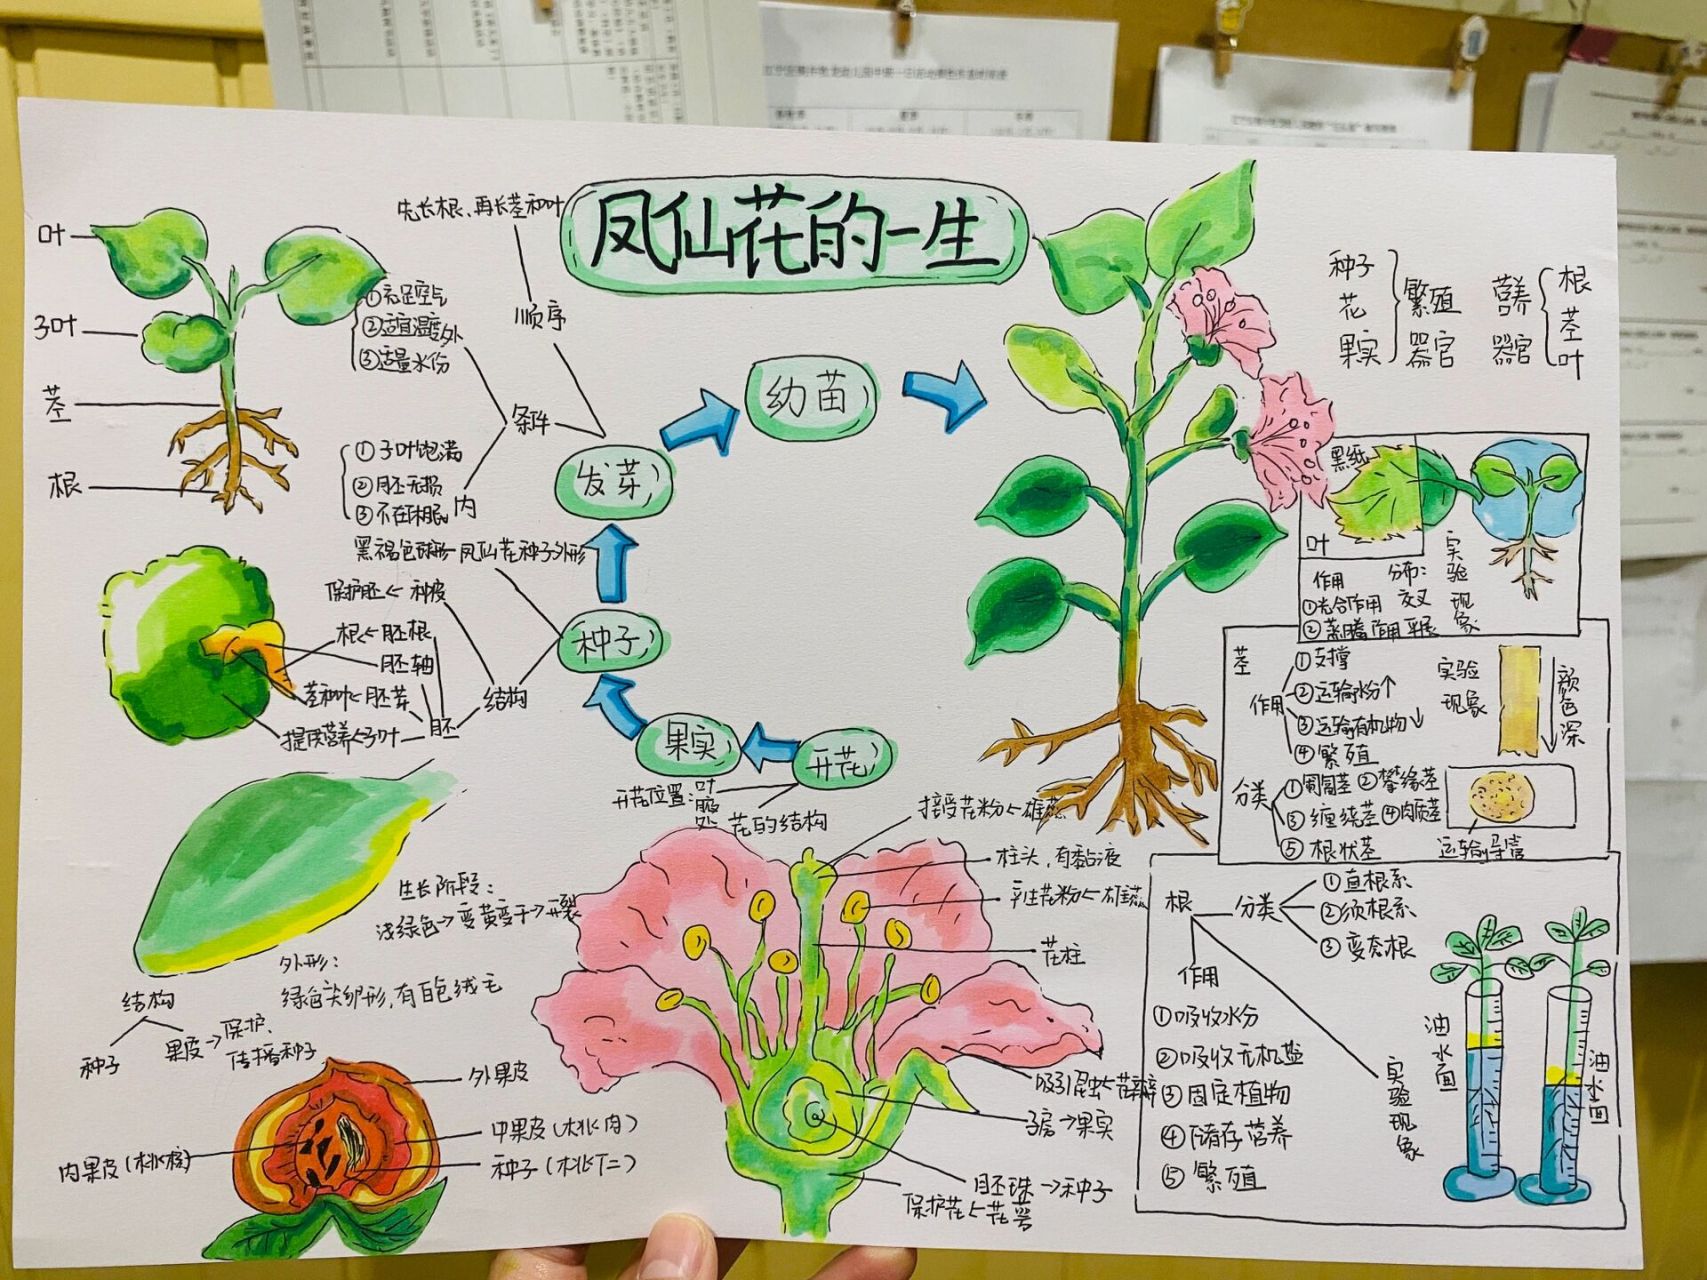 凤仙花的一生
先长根、再长茎和叶
顺序
叶
子叶
茎
根
①充足空气
②适宜温度
③适量水份
外
条件
①子叶饱满
②胚无损
③不在休眠
内
发芽
幼苗
种子
果实
开花
黑褐色球形—凤仙花种子外形
保护胚←种皮
根←胚根
胚轴
茎和叶←胚芽
提供营养←子叶
胚
结构
开花位置：叶腋处
花的结构
生长阶段：
浅绿色→变黄变干→开裂
外形：
绿色尖卵形，有白色绒毛
结构
种子
果皮→保护、
传播种子
外果皮
中果皮（桃肉）
种子（桃仁）
内果皮（桃核）
接受花粉←雄蕊
柱头，有黏液
产生花粉←雄蕊
花柱
吸引昆虫←花瓣
子房→果实
胚珠→种子
保护花←花萼
种子
花
果实
繁殖
器官
营养
器官
根
茎
叶
黑纸
叶
作用
①光合作用
②蒸腾作用
分布：
交叉
平展
实验现象
茎
作用
①支撑
②运输水份↑
③运输有机物↓
④繁殖
实验
现象
颜色深
分类
①匍匐茎 ②攀缘茎
③缠绕茎 ④肉质茎
⑤根状茎
运输导管
根
分类
①直根系
②须根系
③变态根
作用
①吸收水分
②吸收无机盐
③固定植物
④储存营养
⑤繁殖
实验现象
油
水面
油
水面